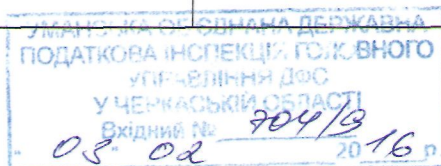 УМАНСЬКА ОБ'ЄДНАНА ДЕРЖАВНА
ПОДАТКОВА ІНСПЕКЦІЯ ГОЛОВНОГО
УПРАВЛІННЯ ДФС
У ЧЕРКАСЬКІЙ ОБЛАСТІ
Вхідний № 704/9
"03" 02 2016 р